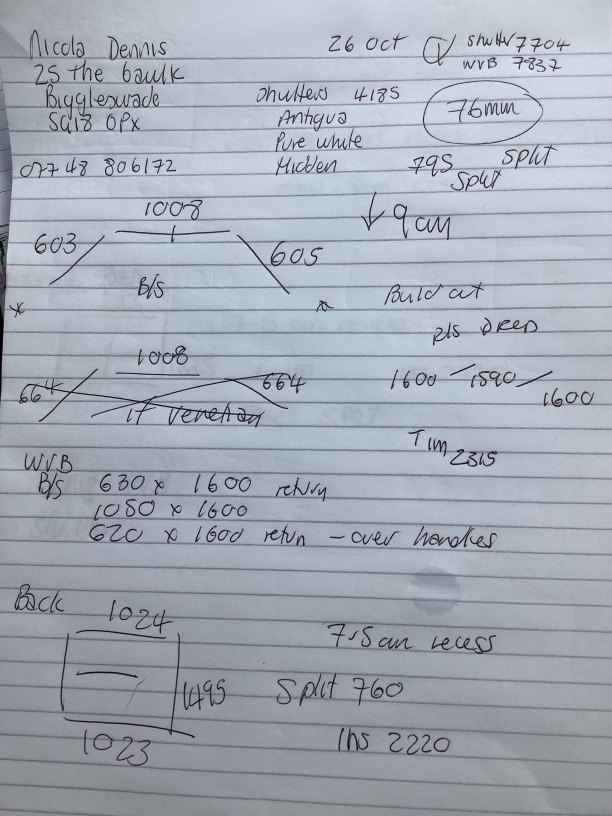 Nicola Dennis
26 Oct
shutter 7704
WVB 7837
25 the baulk
Biggleswade
SG18 0PX
Shutters 4185
Antigua
Pure white
Hidden
76mm
07748 806172
795 split
split
1008
603
605
B/S
↓ 9am
Build out
pls
1008
664
664
if venetian
1600 1590 1600
Tim 2315
WVB
B/S 630 x 1600 return
1050 x 1600
620 x 1600 retun - over handles
Back
1024
1495
1023
7.5cm recess
Split 760
lhs 2220